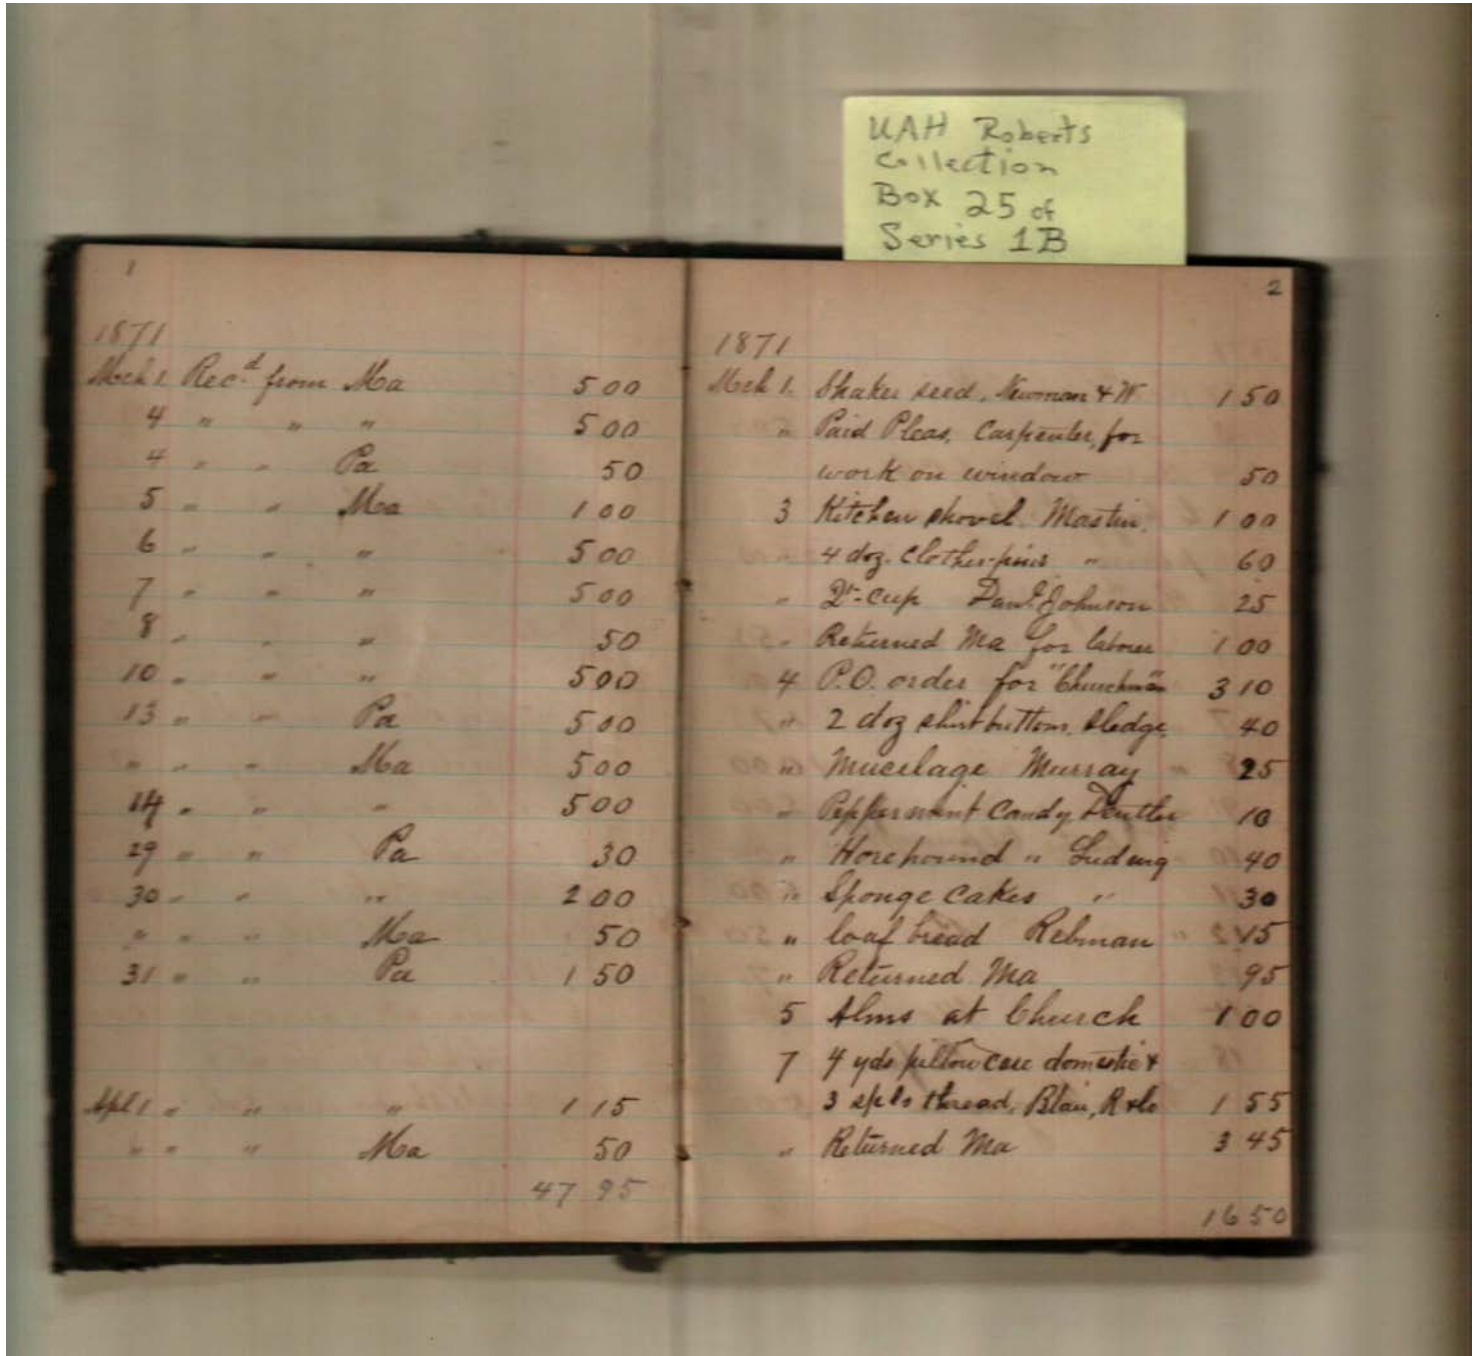 UAH Roberts
Collection
Box 25 of
Series 1B
1
1871
Mch 1. Rec.d from Ma 5 00
4 " " " 5 00
4 " " Pa 50
5 " " Ma 1 00
6 " " " 5 00
7 " " " 5 00
8 " " " 50
10 " " " 5 00
13 " " Pa 5 00
" " " Ma 5 00
14 " " " 5 00
29 " " Pa 30
30 " " " 2 00
" " " Ma 50
31 " " Pa 1 50
Apl 1 " " " 1 15
" " " Ma 50
47 95
2
1871
Mch 1. Shaker seed, Newman & W 1 50
" Paid Pleas. Carpenter, for
work on window 50
3 Kitchen shovel Mastin. 1 00
4 doz. clothes-pins " 60
" cup Danl. Johnson 25
" Returned Ma for labour 1 00
4 P.O. order for "Churchman" 3 10
" 2 doz shirt buttons, Sledge 40
" Mucilage Murray 25
" Peppermint Candy, 10
" Horehound " Ludwig 40
" Sponge Cakes " 30
" loaf bread Rebman 15
" Returned Ma 95
5 Alms at Church 1 00
7 4 yds pillow case domestic &
3 spls thread, Blair, R & Co 1 55
" Returned Ma 3 45
16 50